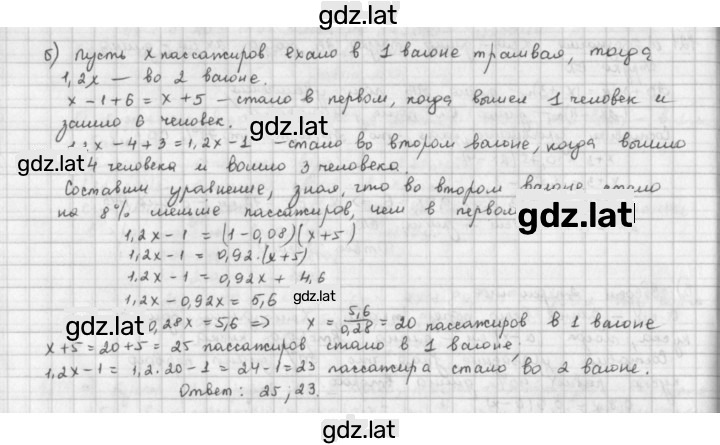 gdz.lat
б) Пусть x пассажиров ехало в 1 вагоне трамвая, тогда
1,2x — во 2 вагоне.
x - 1 + 6 = x + 5 — стало в первом, когда вышел 1 человек и
зашло 6 человек.
gdz.lat
x - 4 + 3 = 1,2x - 1 — стало во втором вагоне, когда вышло
gdz.lat
4 человека и вошло 3 человека.
Составим уравнение, зная, что во втором вагоне стало
на 8% меньше пассажиров, чем в первом
gdz.lat
1,2x - 1 = (1 - 0,08)(x + 5)
1,2x - 1 = 0,92·(x + 5)
1,2x - 1 = 0,92x + 4,6
gdz.lat
1,2x - 0,92x = 5,6
gdz.lat
0,28x = 5,6 => x = 5,6/0,28 = 20 пассажиров в 1 вагоне
x + 5 = 20 + 5 = 25 пассажиров стало в 1 вагоне,
1,2x - 1 = 1,2·20 - 1 = 24 - 1 = 23 пассажира стало во 2 вагоне.
Ответ: 25; 23.
gdz.lat